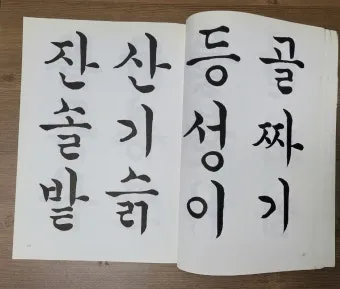 골짜기
등성이
산기슭
잔솔밭